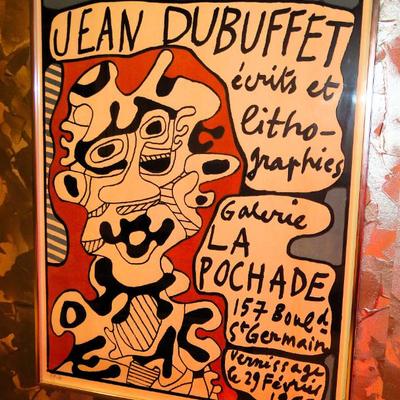 JEAN DUBUFFET
écrits et
litho-
graphies
Galerie
LA
POCHADE
157 Boul d
St Germain
Vernissage
le 29 Février